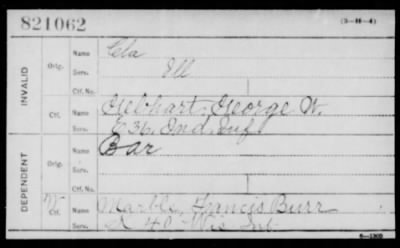 821062 (3-H-4)
INVALID
Orig. Name Cla
Serv. Ill
Ctf. No.
Ctf. Name Gebhart, George W.
Serv. E 36, Ind. Inf.
DEPENDENT
Orig. Name Bar
Serv.
Ctf. No.
W Ctf. Name Marble, Francis Burr
Serv. 40 Wis Inf
6-1302